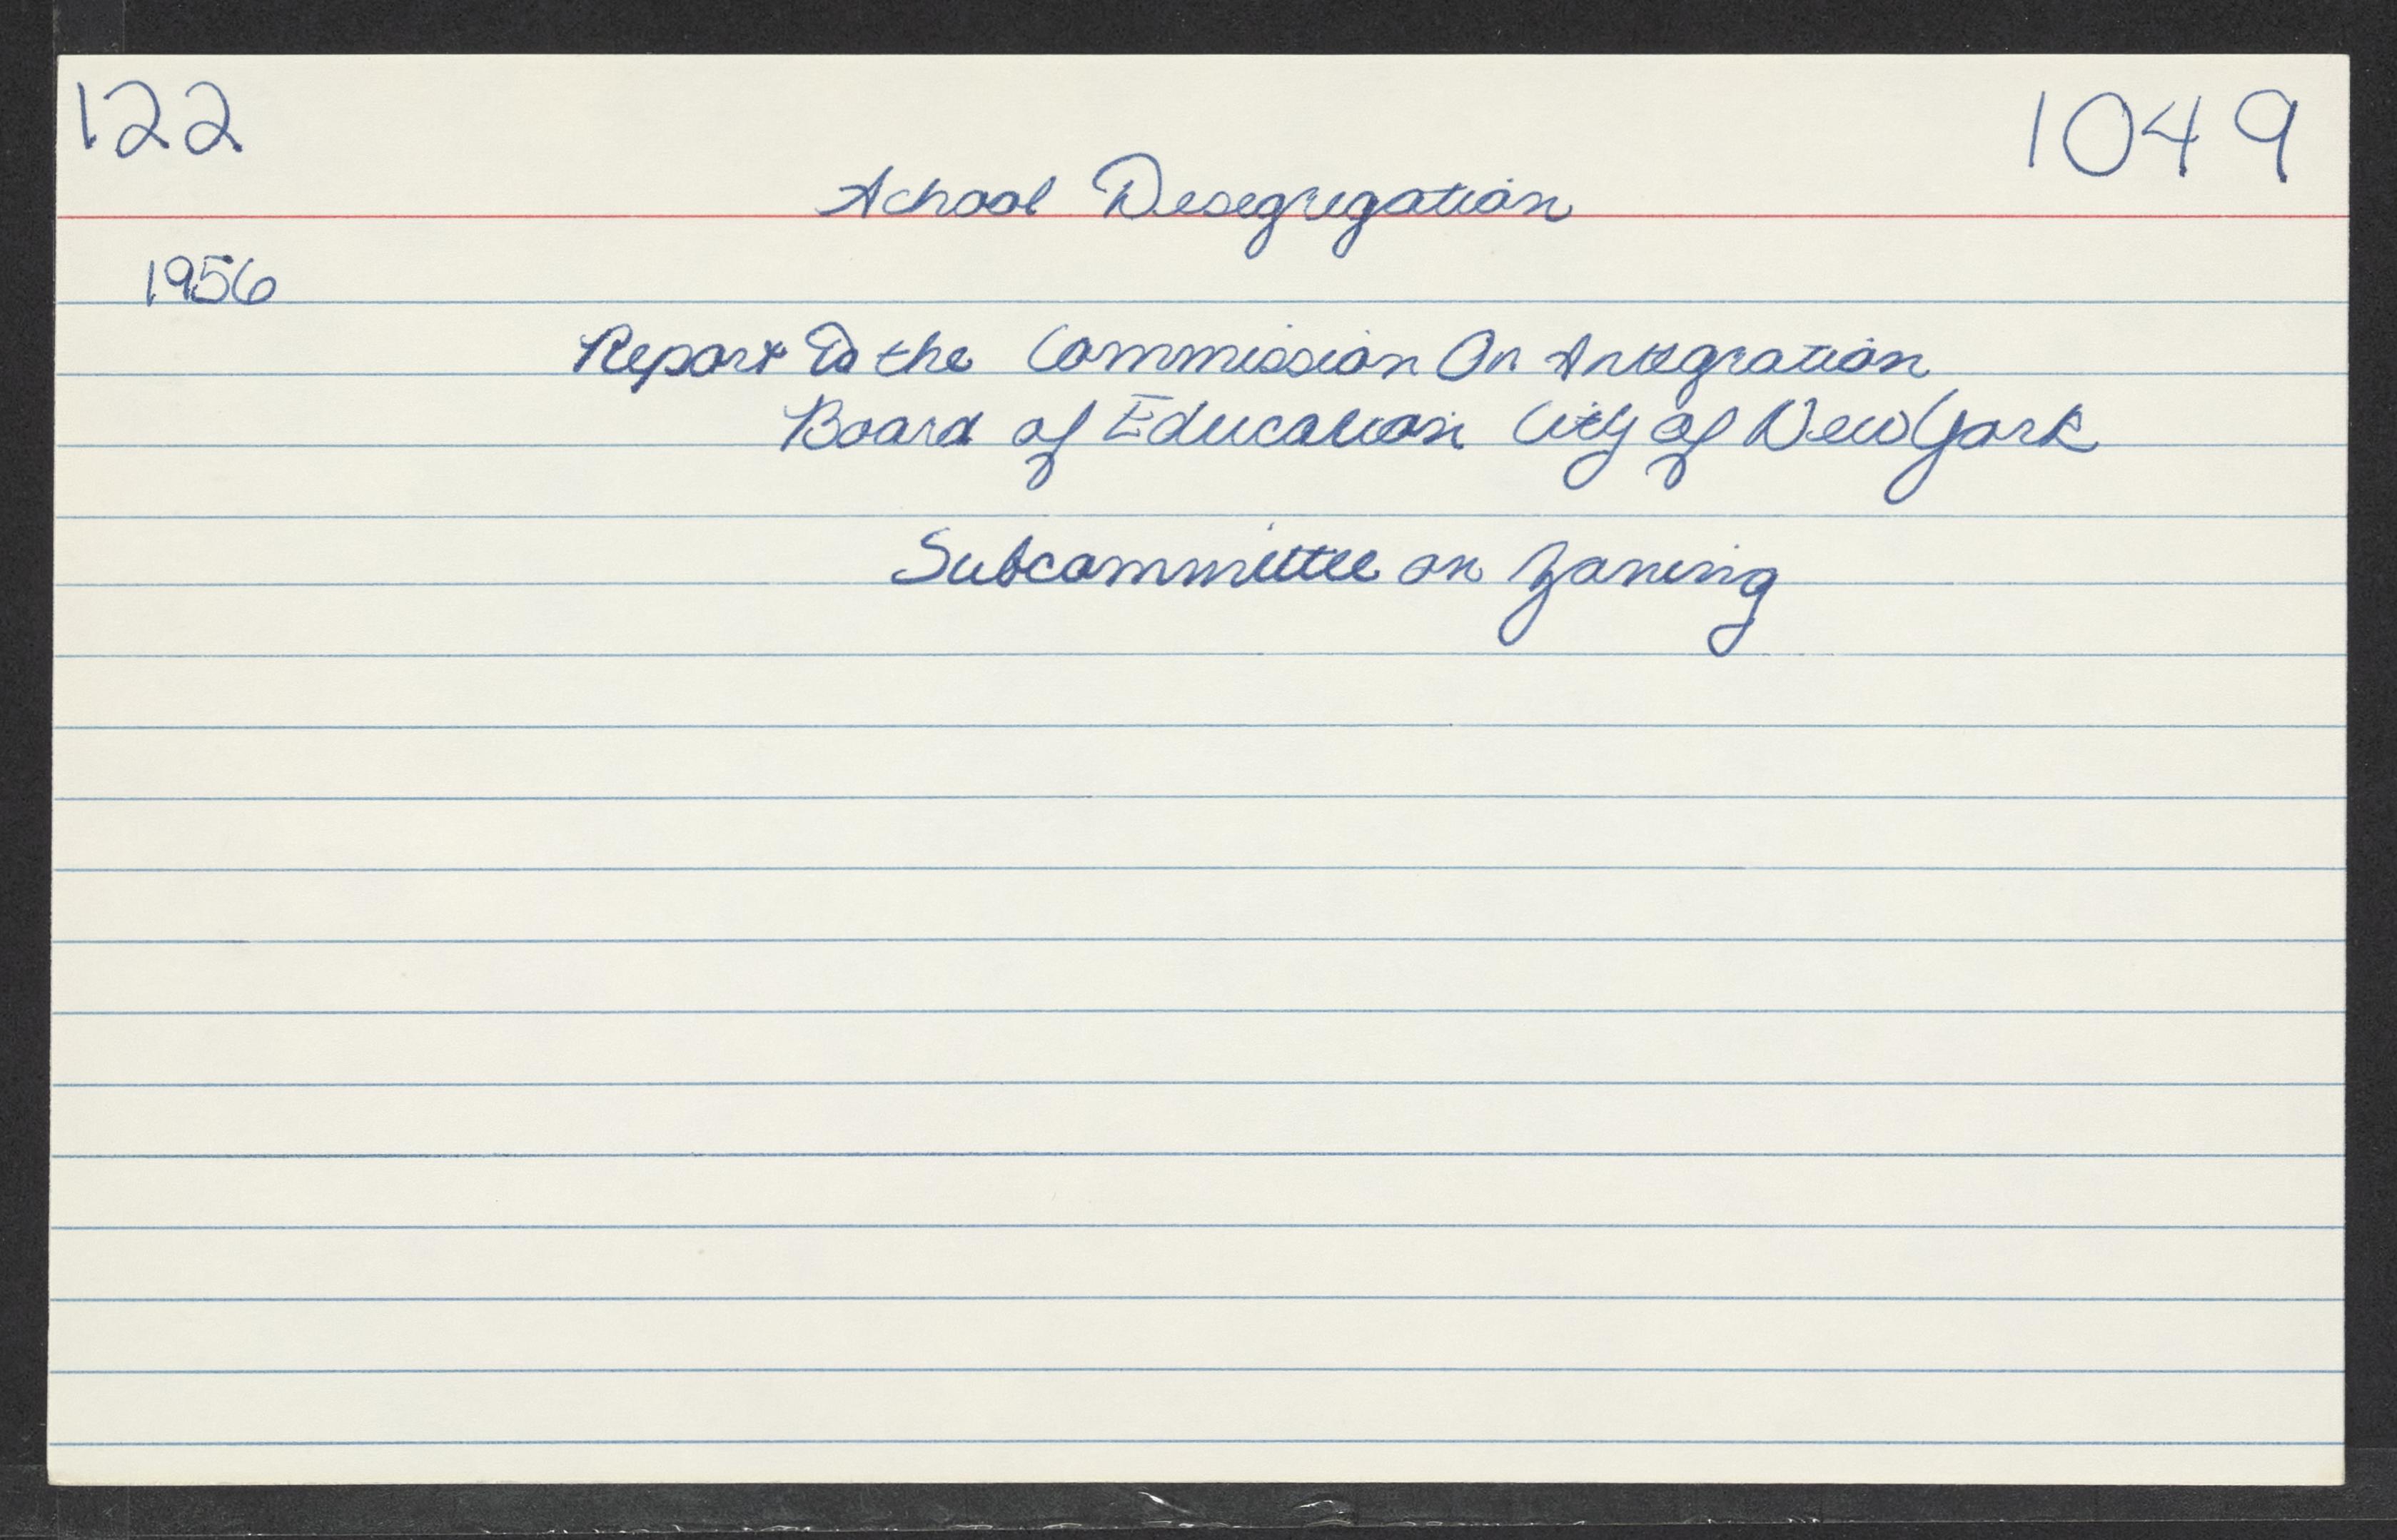 122
1049
School Desegregation
1956
Report To the Commission On Integration
Board of Education City of New York
Subcommittee on Zoning